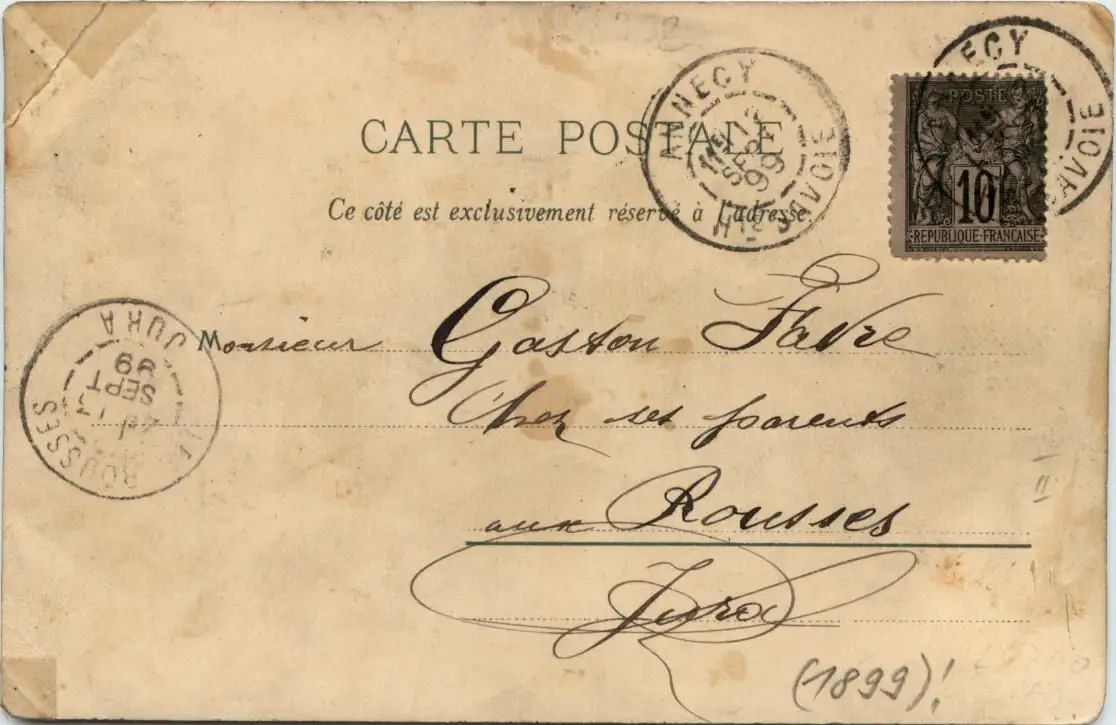 CARTE POSTALE
Ce côté est exclusivement réservé à l'adresse.
ANNECY
SEPT
99
HTE SAVOIE
POSTE
10
REPUBLIQUE FRANÇAISE
JURA
SEPT
99
ROUSSES
Monsieur Gaston Favre
Chez ses parents
aux Rousses
Jura
(1899)!